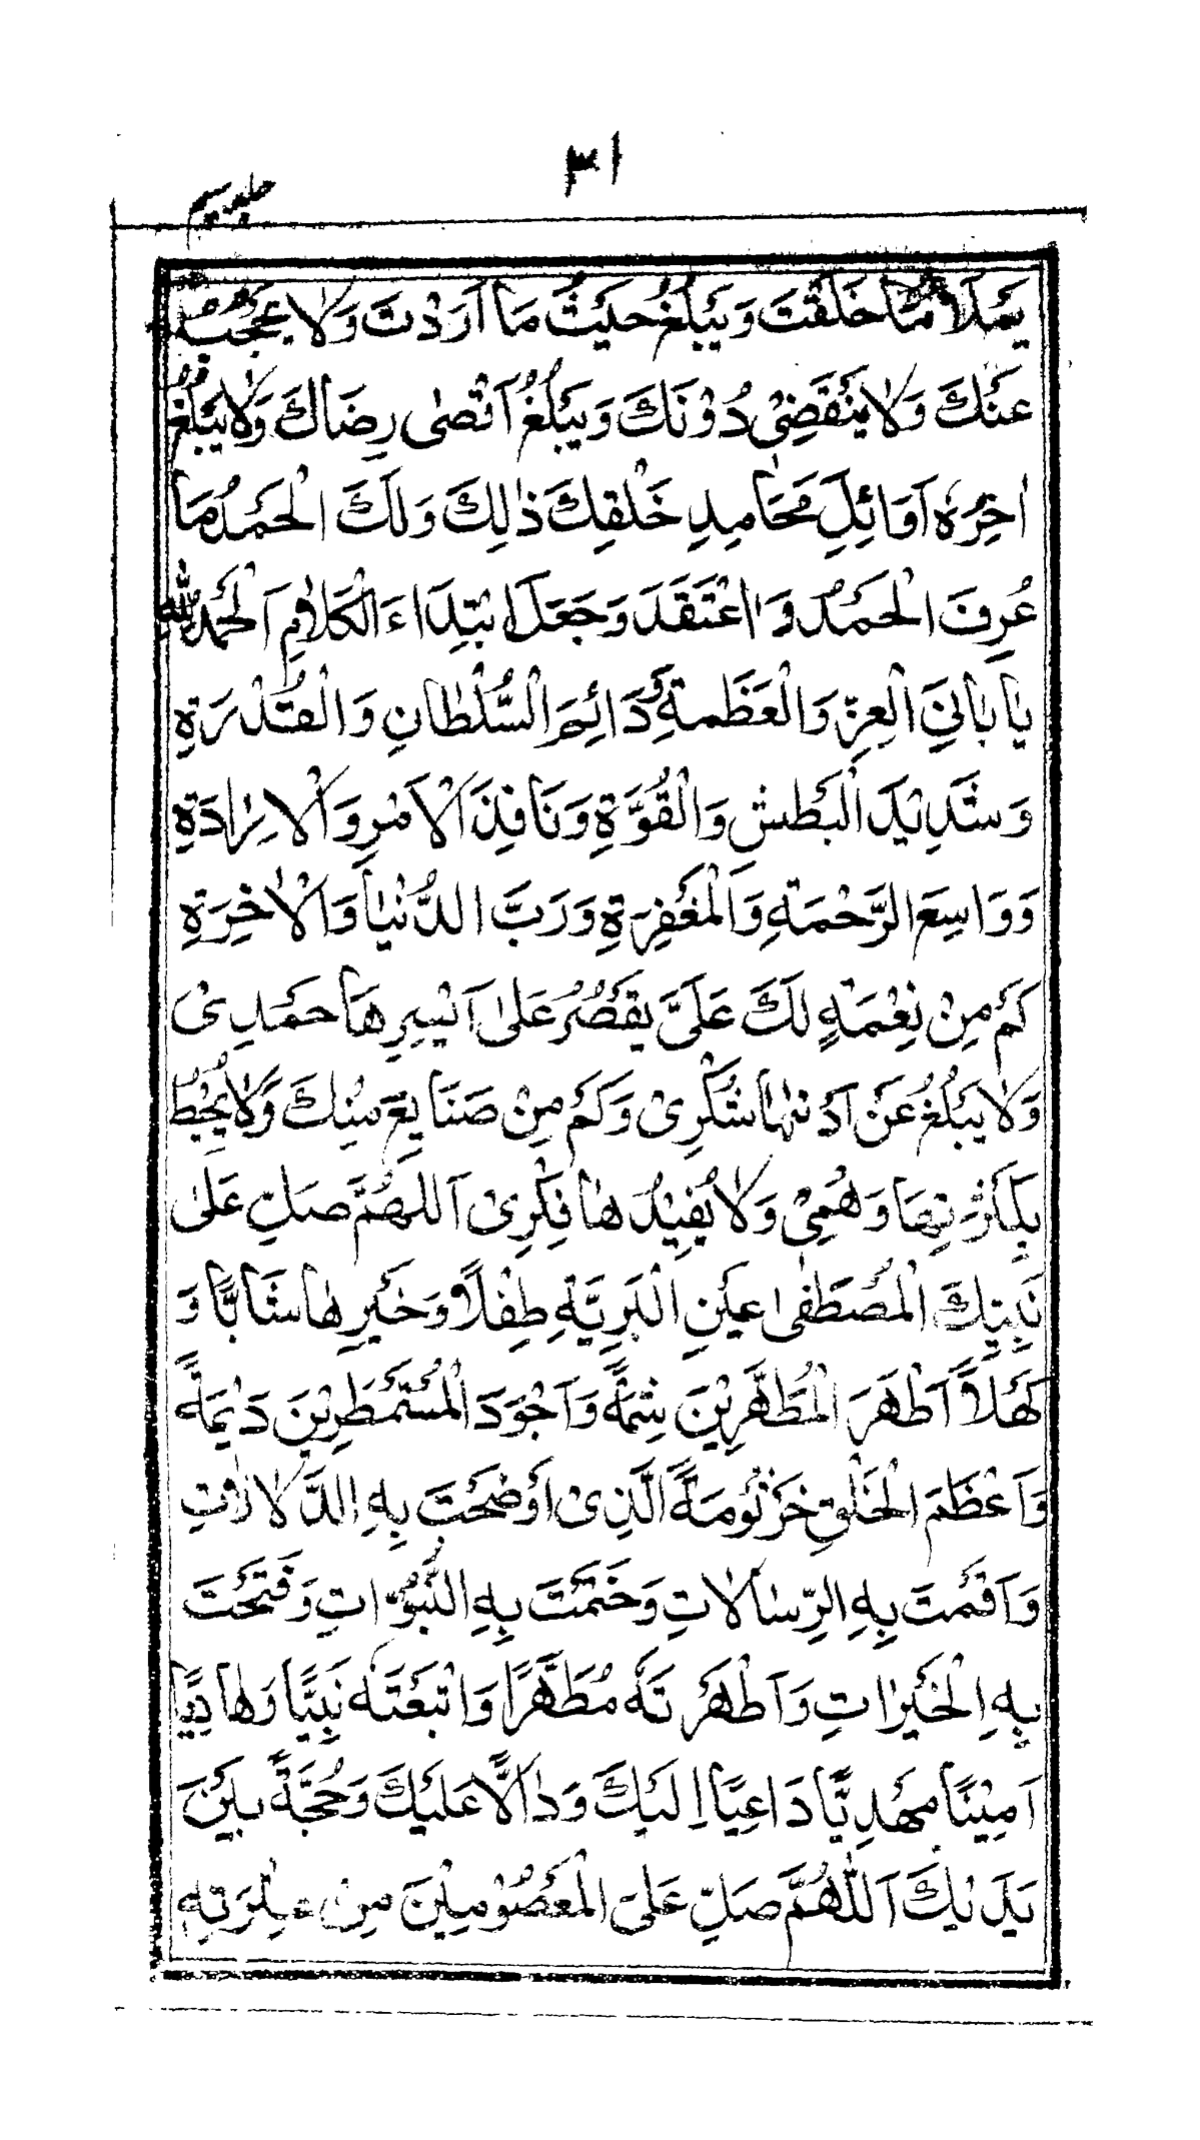 ٣١
جلد سیم
يَمْلَأُ مَا خَلَقْتَ وَيَبْلُغُ حَيْثُ مَا اَرَدْتَ وَلَا يَحْجُبُ
عَنْكَ وَلَا يَنْقَضِيْ دُوْنَكَ وَيَبْلُغُ اَقْصٰى رِضَاكَ وَلَا يَبْلُغُ
اٰخِرُهُ اَوَائِلَ مَحَامِدِ خَلْقِكَ ذٰلِكَ وَلَكَ الْحَمْدُ مَا
عُرِفَ الْحَمْدُ وَاعْتَقَدَ وَجَعَلَ ابْتِدَاءَ الْكَلَامِ اَلْحَمْدُ لِلّٰهِ
يَا بَاقِيَ الْعِزِّ وَالْعَظَمَةِ وَدَائِمَ السُّلْطَانِ وَالْقُدْرَةِ
وَشَدِيْدَ الْبَطْشِ وَالْقُوَّةِ وَنَافِذَ الْاَمْرِ وَالْاِرَادَةِ
وَوَاسِعَ الرَّحْمَةِ وَالْمَغْفِرَةِ وَرَبَّ الدُّنْيَا وَالْاٰخِرَةِ
كَمْ مِنْ نِعْمَةٍ لَكَ عَلَيَّ يَقْصُرُ عَلٰى اَيْسَرِهَا حَمْدِيْ
وَلَا يَبْلُغُ عَنْ اَدْنٰهَا شُكْرِيْ وَكَمْ مِنْ صَنَايِعَ مِنْكَ وَلَا يُحِيْطُ
بِكَثْرَتِهَا وَهْمِيْ وَلَا يُفِيْدُهَا فِكْرِيْ اَللّٰهُمَّ صَلِّ عَلٰى
نَبِيِّكَ الْمُصْطَفٰى عَيْنِ الْبَرِيَّةِ طِفْلًا وَخَيْرِهَا شَابًّا وَ
كَهْلًا اَطْهَرَ الْمُطَهَّرِيْنَ شِيْمَةً وَاَجْوَدَ الْمُسْتَمْطَرِيْنَ دَيْمَةً
وَاَعْظَمَ الْخَلْقِ جَرْثُوْمَةً الَّذِيْ اَوْضَحْتَ بِهِ الدَّلَالَاتِ
وَاَقَمْتَ بِهِ الرِّسَالَاتِ وَخَتَمْتَ بِهِ النُّبُوَّاتِ وَفَتَحْتَ
بِهِ الْخَيْرَاتِ وَاَظْهَرْتَهُ مُطَهَّرًا وَابْتَعَثْتَهُ نَبِيًّا وَهَادِيًا
اَمِيْنًا مَهْدِيًّا دَاعِيًا اِلَيْكَ وَدَالًّا عَلَيْكَ وَحُجَّةً بَيْنَ
يَدَيْكَ اَللّٰهُمَّ صَلِّ عَلَى الْمَعْصُوْمِيْنَ مِنْ عِتْرَتِهِ